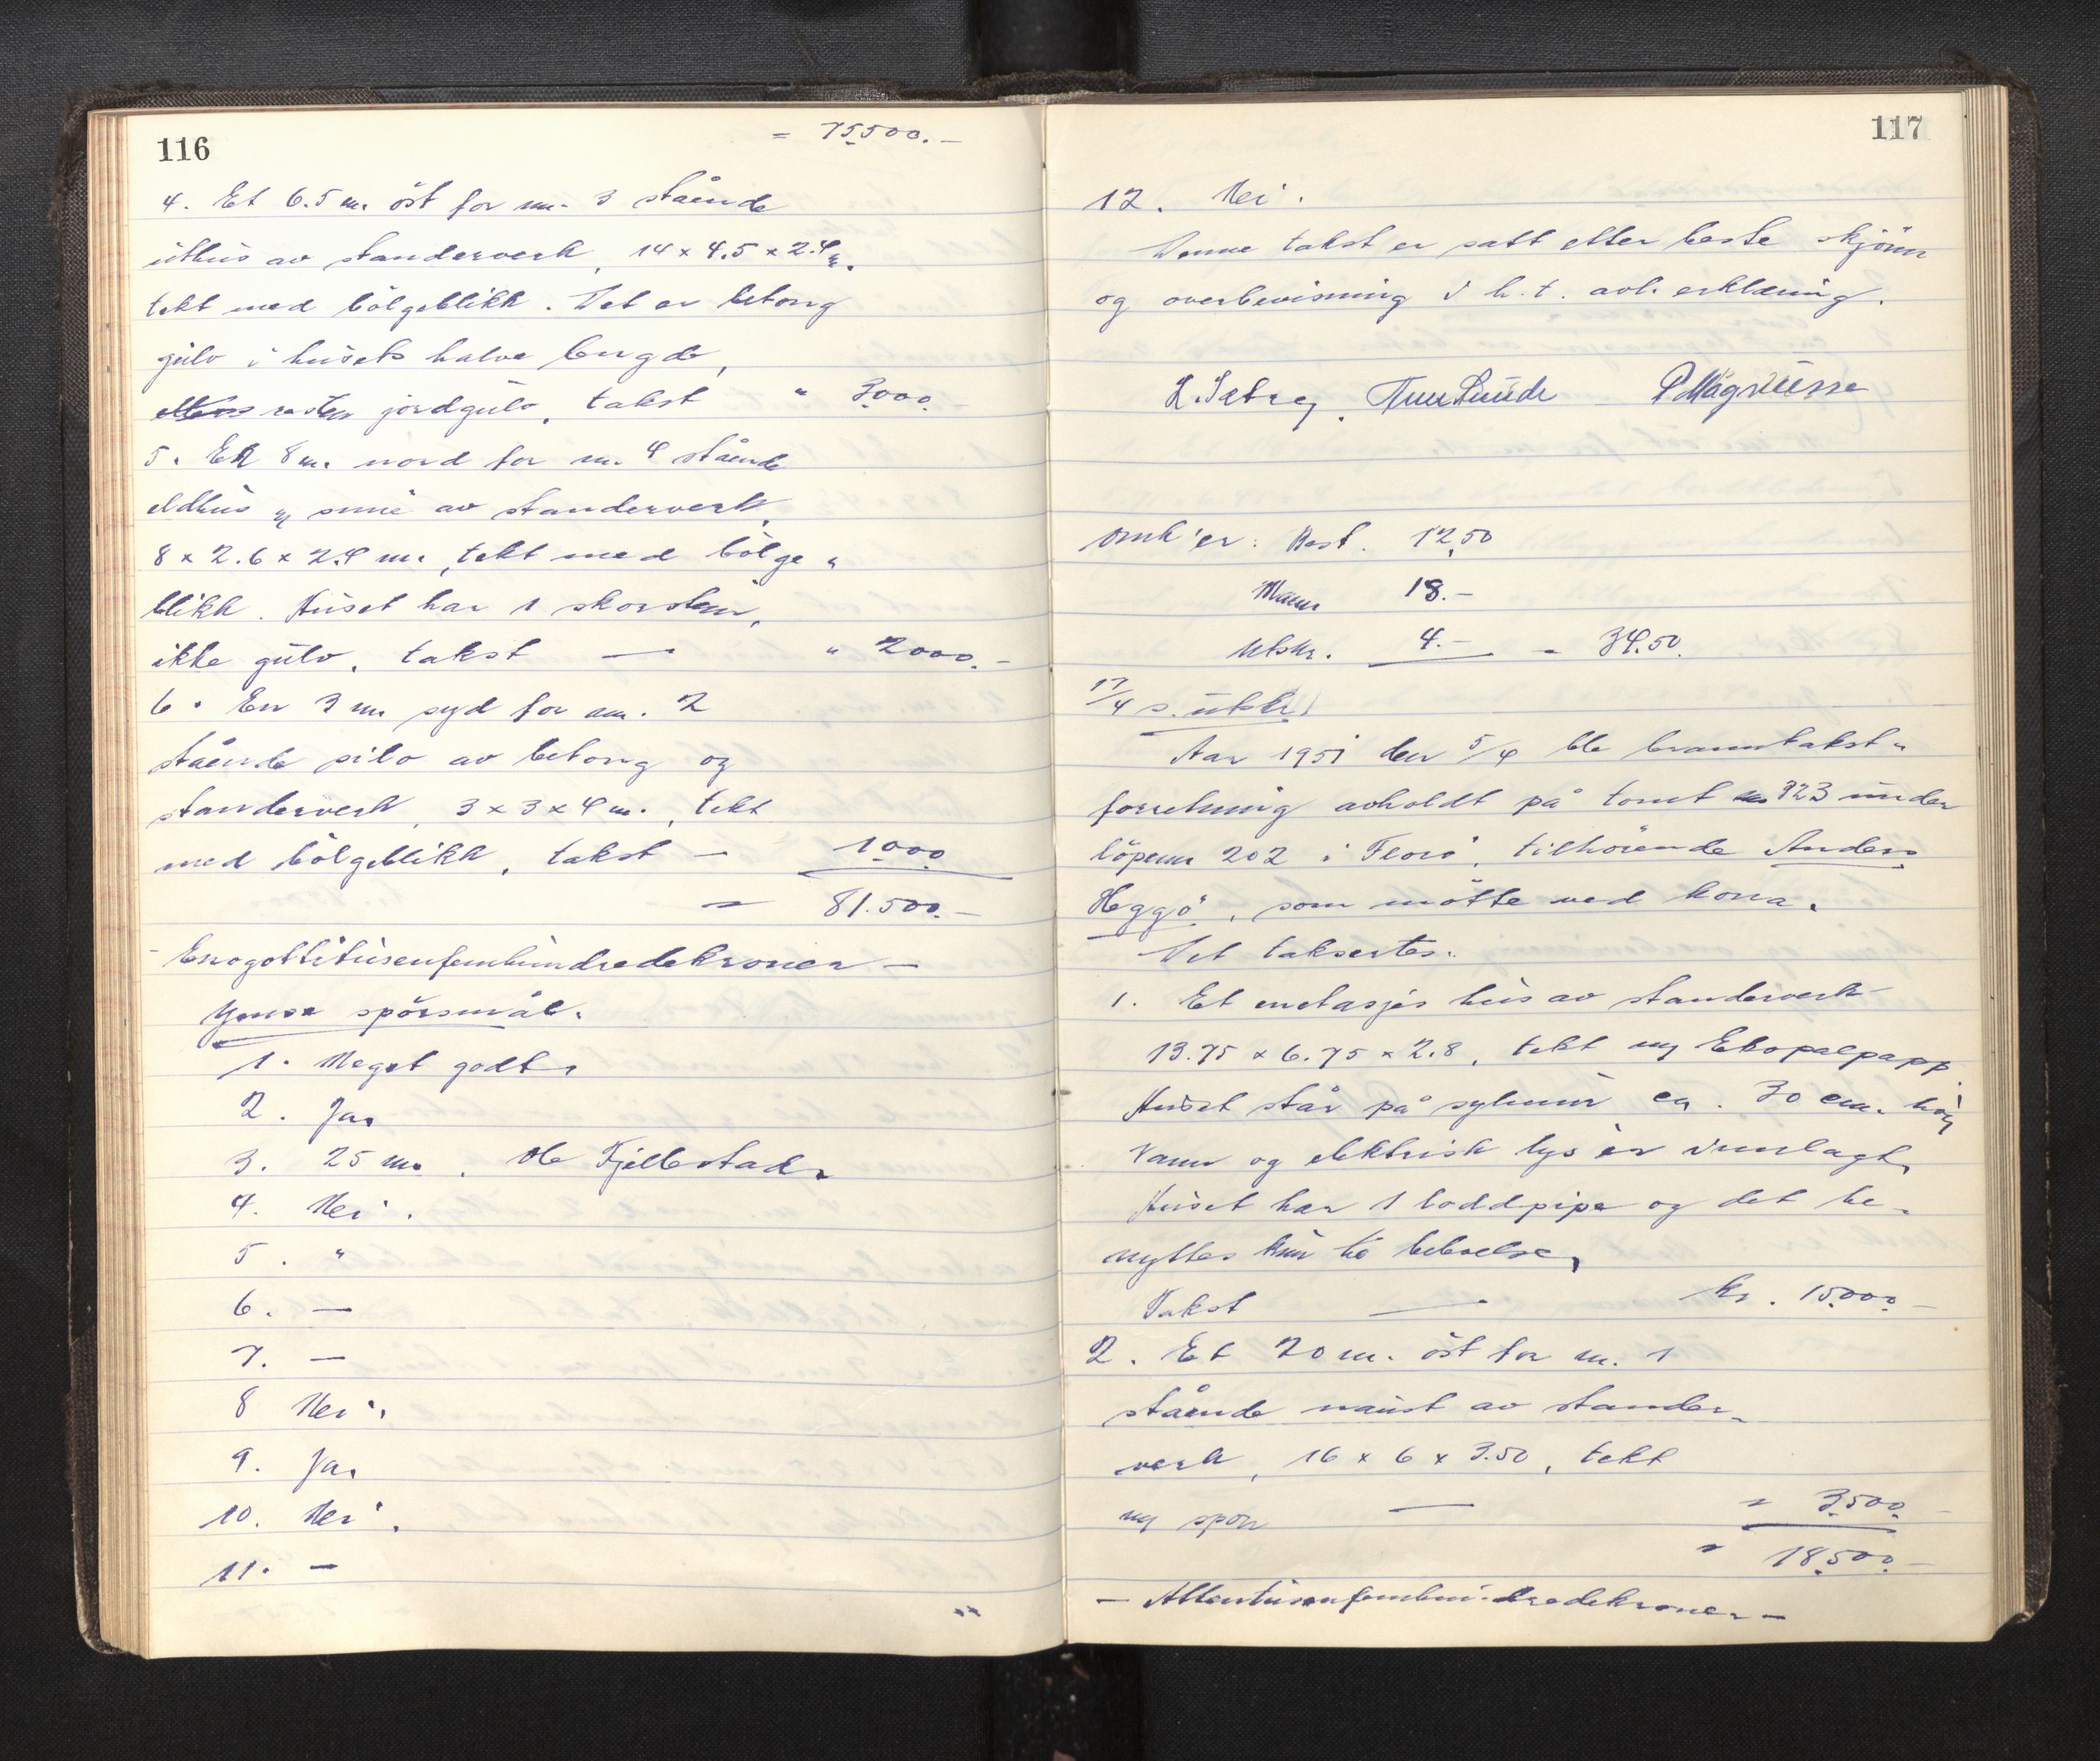 116
= 75.500.-
4. Et 6.5 m. öst for nr. 3 stående
uthus av standerverk, 14 x 4.5 x 2.4 m.
tekt med bölgeblikk. Det er betong
gulv i husets halve lengde,
resten jordgulv, takst " 3000.
5. Et 8 m. nord for nr. 4 stående
eldhus og smie av standerverk,
8 x 2.6 x 2.4 m., tekt med bölge-
blikk. Huset har 1 skorsten,
ikke gulv, takst — " 2000.-
6. En 3 m syd for nr. 2
stående silo av betong og
standerverk, 3 x 3 x 4 m., tekt
med bölgeblikk, takst — 1000
= 81.500.-
- Enogottitusenfemhundredekroner -
Ymse spörsmål.
1. Meget godt.
2. Ja.
3. 25 m. Ole Fjellestad.
4. Nei.
5. "
6. —
7. —
8 Nei.
9. Ja.
10. Nei.
11. —
117
12. Nei.
Denne takst er satt etter beste skjönn
og overbevisning i h.t. avl. erklæring.
L. Sætrey, Lunde P Magnusse
Omk'er: Best. 12,50
Mann 18.-
Utskr. 4.- = 34.50.
17/4 s. utskr.
Aar 1951 den 5/4 ble branntakst-
forretning avholdt på tomt nr 923 under
löpenr 202 i Florö, tilhörende Anders
Heggö, som mötte ved kona.
Det taksertes:
1. Et enetasjes hus av standerverk
13.75 x 6.75 x 2.8, tekt m/ Ekopalpapp
Huset står på sylmur ca. 30 cm. höy
Vann og elektrisk lys er innlagt,
Huset har 1 loddpipe og det be-
nyttes kun til beboelse,
Takst — kr. 15.000.-
2. Et 20 m. öst for nr. 1
stående naust av stander-
verk, 16 x 6 x 3.50, tekt
m/ spon — " 3.500.-
" 18.500.-
- Attentusenfemhundredekroner -